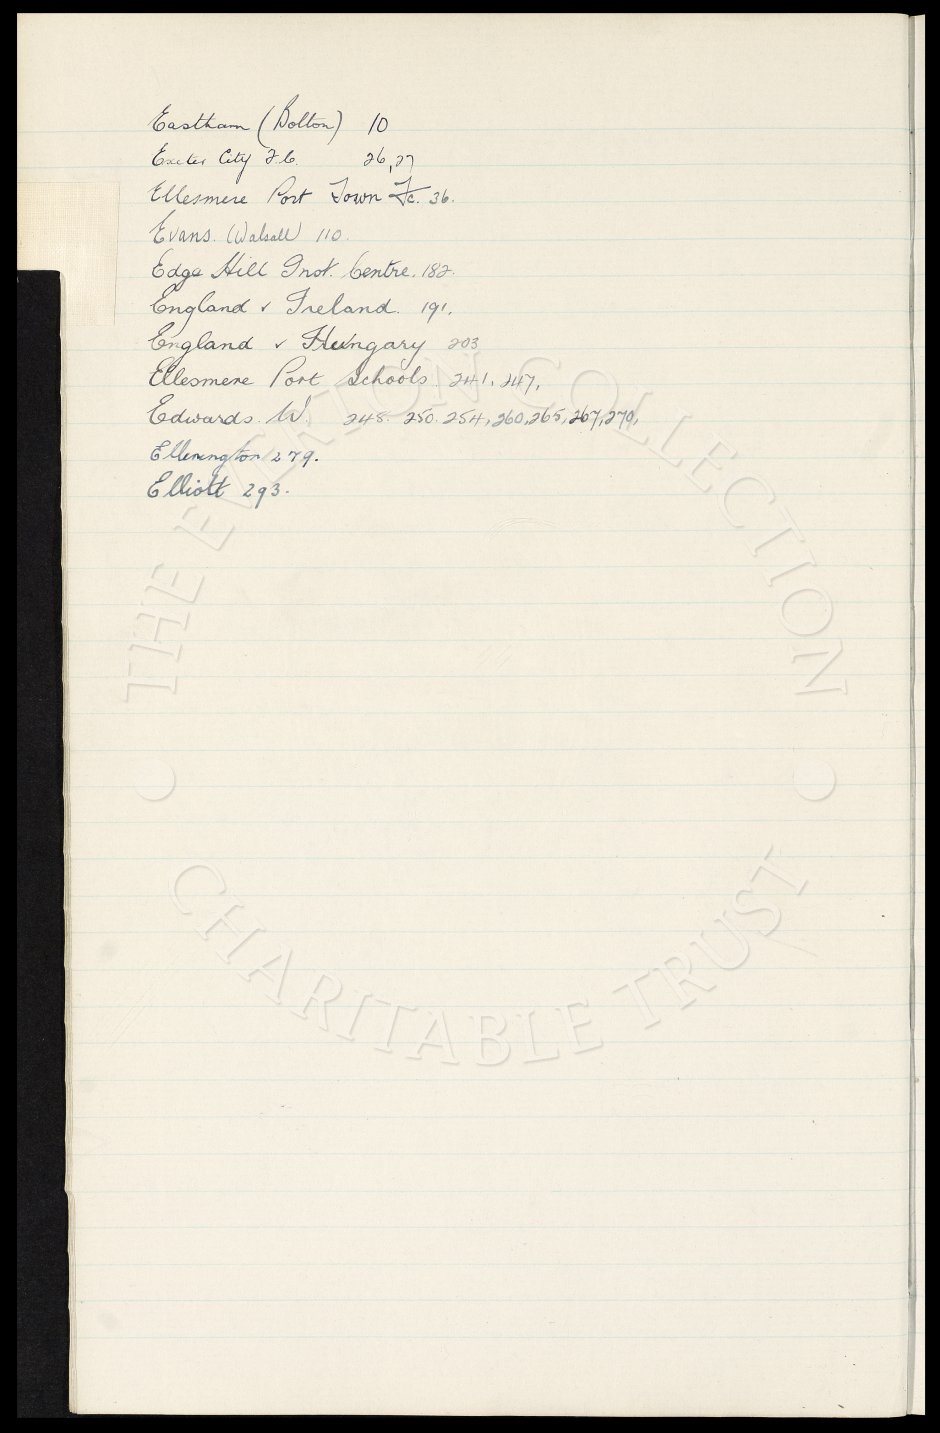 Eastham (Bolton) 10
Exeter City F.C. 26,27
Ellesmere Port Town Fc. 36.
Evans. (Walsall) 110.
Edge Hill Inst. Centre. 182.
England v Ireland. 191.
England v Hungary 203
Ellesmere Port Schools. 241, 247,
Edwards. W. 248. 250. 254, 260, 265, 267, 270,
Ellerington 279.
Elliott 293.
THE EVERTON COLLECTION
CHARITABLE TRUST